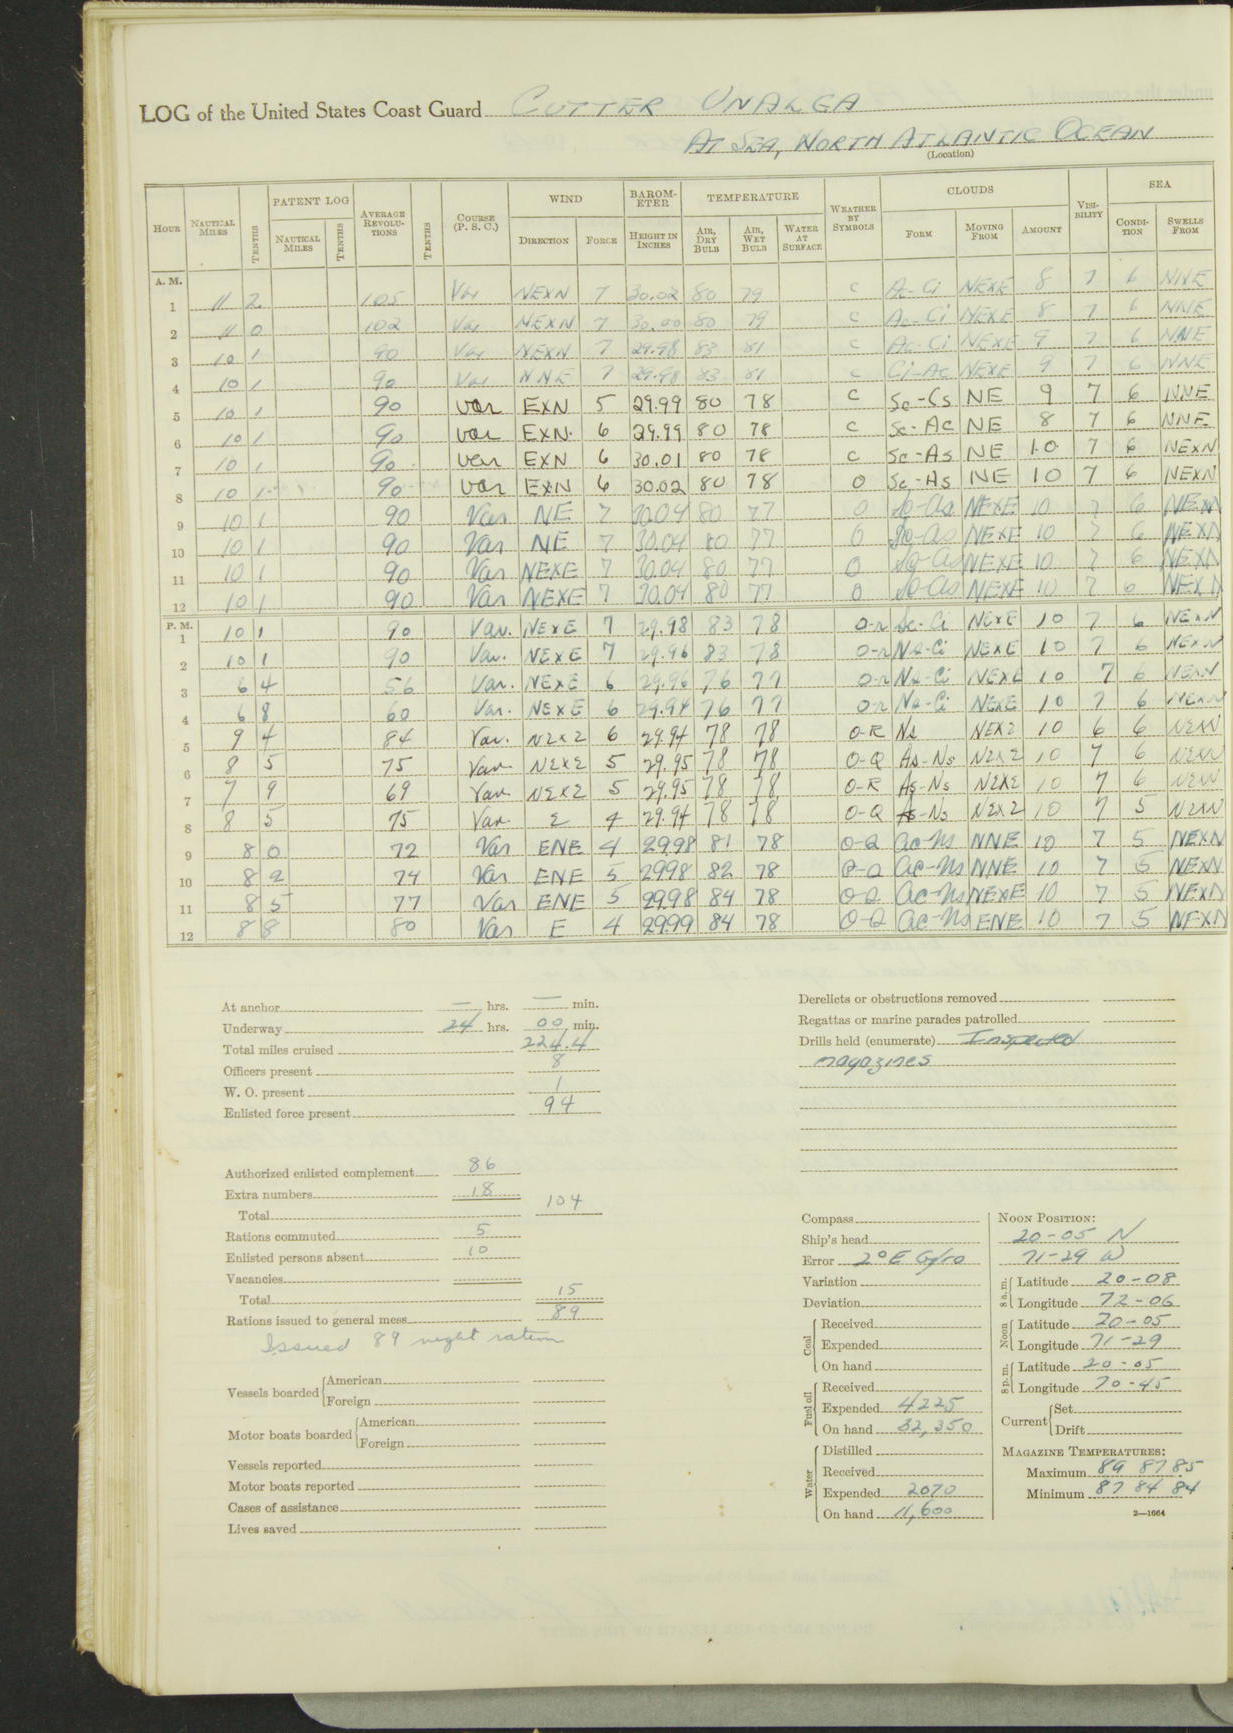 LOG of the United States Coast Guard CUTTER UNALGA
AT SEA, NORTH ATLANTIC OCEAN
(Location)
HOUR NAUTICAL MILES TENTHS PATENT LOG NAUTICAL MILES TENTHS AVERAGE REVOLUTIONS TENTHS COURSE (P. S. C.) WIND DIRECTION FORCE BAROMETER HEIGHT IN INCHES TEMPERATURE AIR, DRY BULB AIR, WET BULB WATER AT SURFACE WEATHER BY SYMBOLS CLOUDS FORM MOVING FROM AMOUNT VISIBILITY SEA CONDITION SWELLS FROM
A. M.
1 11 2 105 Var NEXN 7 30.02 80 79 C Ac-Ci NEXE 8 7 6 NNE
2 11 0 102 Var NEXN 7 30.00 80 79 C Ac-Ci NEXE 8 7 6 NNE
3 10 1 90 Var NEXN 7 29.98 83 81 C Ac-Ci NEXE 9 7 6 NNE
4 10 1 90 Var NNE 7 29.98 83 81 C Ci-Ac NEXE 9 7 6 NNE
5 10 1 90 var EXN 5 29.99 80 78 C Sc-Cs NE 9 7 6 NNE
6 10 1 90 var EXN 6 29.99 80 78 C Sc-Ac NE 8 7 6 NNE
7 10 1 90 var EXN 6 30.01 80 78 C Sc-As NE 10 7 6 NEXN
8 10 1 90 var EXN 6 30.02 80 78 O Sc-As NE 10 7 6 NEXN
9 10 1 90 Var NE 7 30.04 80 77 O Sc-As NEXE 10 7 6 NEXN
10 10 1 90 Var NE 7 30.04 80 77 O Sc-As NEXE 10 7 6 NEXN
11 10 1 90 Var NEXE 7 30.04 80 77 O Sc-As NEXE 10 7 6 NEXN
12 10 1 90 Var NEXE 7 30.04 80 77 O Sc-As NEXE 10 7 6 NEXN
P. M.
1 10 1 90 Var. NEXE 7 29.98 83 78 O-R Sc-Ci NEXE 10 7 6 NEXN
2 10 1 90 Var. NEXE 7 29.96 83 78 O-R Ns-Ci NEXE 10 7 6 NEXN
3 6 4 56 Var. NEXE 6 29.96 76 77 O-R Ns-Ci NEXE 10 7 6 NEXN
4 6 8 60 Var. NEXE 6 29.94 76 77 O-R Ns-Ci NEXE 10 7 6 NEXN
5 9 4 84 Var. NEXE 6 29.94 78 78 O-R Ns NEXE 10 6 6 NEXN
6 8 5 75 Var NEXE 5 29.95 78 78 O-Q As-Ns NEXE 10 7 6 NEXN
7 7 9 69 Var NEXE 5 29.95 78 78 O-R As-Ns NEXE 10 7 6 NEXN
8 8 5 75 Var E 4 29.94 78 78 O-Q As-Ns NEXE 10 7 5 NEXN
9 8 0 72 Var ENE 4 2998 81 78 O-Q Ac-Ns NNE 10 7 5 NEXN
10 8 2 74 Var ENE 5 2998 82 78 O-Q Ac-Ns NNE 10 7 5 NEXN
11 8 5 77 Var ENE 5 2998 84 78 O-Q Ac-Ns NEXE 10 7 5 NEXN
12 8 8 80 Var E 4 2999 84 78 O-Q Ac-Ns ENE 10 7 5 NEXN
At anchor — hrs. — min.
Underway 24 hrs. 00 min.
Total miles cruised 224.4
Officers present 8
W. O. present 1
Enlisted force present 94
Authorized enlisted complement 86
Extra numbers 18
Total 104
Rations commuted 5
Enlisted persons absent 10
Vacancies
Total 15
Rations issued to general mess 89
Issued 89 night ration
Vessels boarded American
Foreign
Motor boats boarded American
Foreign
Vessels reported
Motor boats reported
Cases of assistance
Lives saved
Derelicts or obstructions removed
Regattas or marine parades patrolled
Drills held (enumerate) Inspected
magazines
Compass
Ship's head
Error 2° E Gyro
Variation
Deviation
Coal Received
Expended
On hand
Fuel oil Received
Expended 4225
On hand 32,350
Water Distilled
Received
Expended 2070
On hand 11,600
NOON POSITION:
20-05 N
71-29 W
8 a.m. Latitude 20-08
Longitude 72-06
Noon Latitude 20-05
Longitude 71-29
8 p.m. Latitude 20-05
Longitude 70-45
Current Set
Drift
MAGAZINE TEMPERATURES:
Maximum 89 87 85
Minimum 87 84 84
2—1664